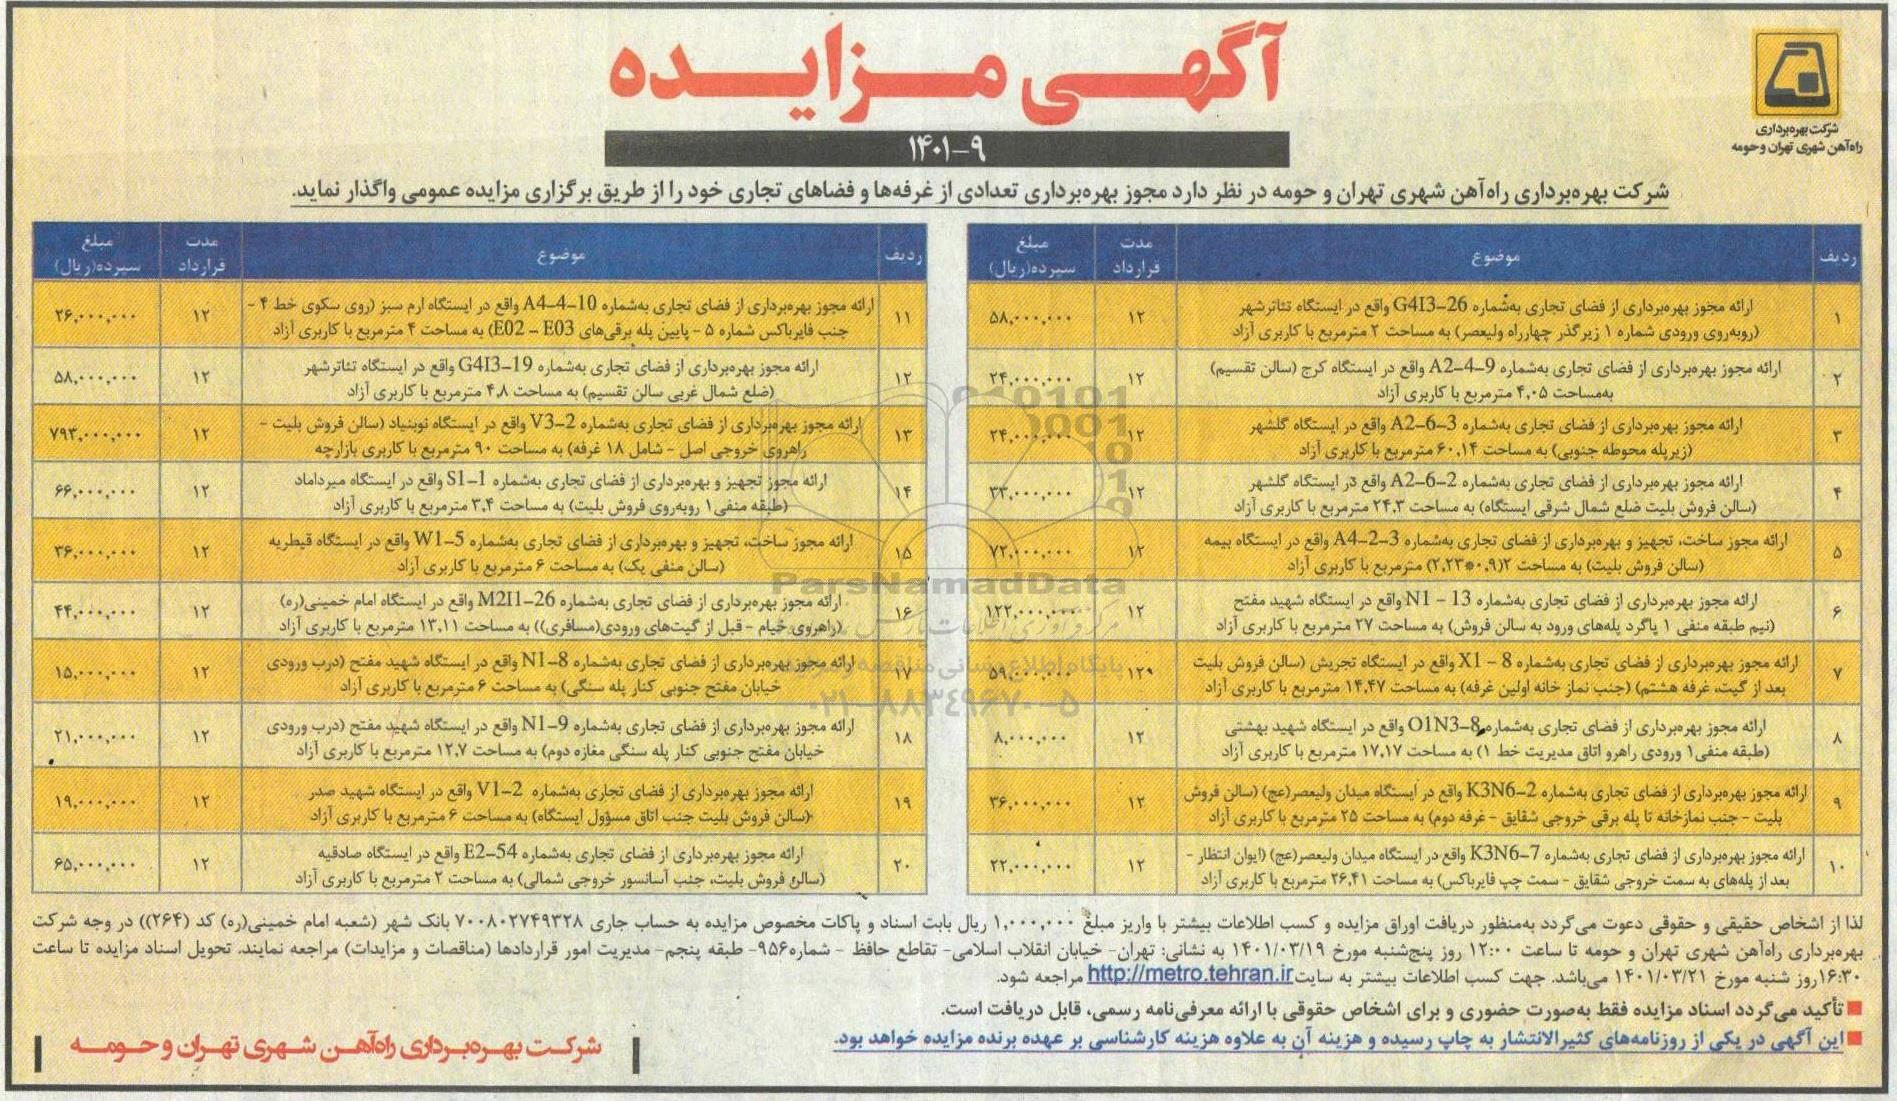 آگهی مزایده
۱۴۰۱-۹
شرکت بهره‌برداری
راه‌آهن شهری تهران و حومه
شرکت بهره‌برداری راه‌آهن شهری تهران و حومه در نظر دارد مجوز بهره‌برداری تعدادی از غرفه‌ها و فضاهای تجاری خود را از طریق برگزاری مزایده عمومی واگذار نماید.
ردیف موضوع مدت قرارداد مبلغ سپرده(ریال)
۱ ارائه مجوز بهره‌برداری از فضای تجاری به‌شماره G4I3-26 واقع در ایستگاه تئاترشهر ۱۲ ۵۸,۰۰۰,۰۰۰
(روبه‌روی ورودی شماره ۱ زیرگذر چهارراه ولیعصر) به مساحت ۲ مترمربع با کاربری آزاد
۲ ارائه مجوز بهره‌برداری از فضای تجاری به‌شماره A2-4-9 واقع در ایستگاه کرج (سالن تقسیم) ۱۲ ۲۴,۰۰۰,۰۰۰
به‌مساحت ۴,۰۵ مترمربع با کاربری آزاد
۳ ارائه مجوز بهره‌برداری از فضای تجاری به‌شماره A2-6-3 واقع در ایستگاه گلشهر ۱۲ ۲۴,۰۰۰,۰۰۰
(زیرپله محوطه جنوبی) به مساحت ۶۰,۱۴ مترمربع با کاربری آزاد
۴ ارائه مجوز بهره‌برداری از فضای تجاری به‌شماره A2-6-2 واقع در ایستگاه گلشهر ۱۲ ۳۳,۰۰۰,۰۰۰
(سالن فروش بلیت ضلع شمال شرقی ایستگاه) به مساحت ۲۴,۳ مترمربع با کاربری آزاد
۵ ارائه مجوز ساخت، تجهیز و بهره‌برداری از فضای تجاری به‌شماره A4-2-3 واقع در ایستگاه بیمه ۱۲ ۷۲,۰۰۰,۰۰۰
(سالن فروش بلیت) به مساحت ۲(۰,۹*۲,۲۳) مترمربع با کاربری آزاد
۶ ارائه مجوز بهره‌برداری از فضای تجاری به‌شماره N1 - 13 واقع در ایستگاه شهید مفتح ۱۲ ۱۲۲,۰۰۰,۰۰۰
(نیم طبقه منفی ۱ پاگرد پله‌های ورود به سالن فروش) به مساحت ۲۷ مترمربع با کاربری آزاد
۷ ارائه مجوز بهره‌برداری از فضای تجاری به‌شماره X1 - 8 واقع در ایستگاه تجریش (سالن فروش بلیت ۱۲ ۵۹,۰۰۰,۰۰۰
بعد از گیت، غرفه هشتم) (جنب نماز خانه اولین غرفه) به مساحت ۱۴,۴۷ مترمربع با کاربری آزاد
۸ ارائه مجوز بهره‌برداری از فضای تجاری به‌شماره O1N3-8 واقع در ایستگاه شهید بهشتی ۱۲ ۸,۰۰۰,۰۰۰
(طبقه منفی۱ ورودی راهرو اتاق مدیریت خط ۱) به مساحت ۱۷,۱۷ مترمربع با کاربری آزاد
۹ ارائه مجوز بهره‌برداری از فضای تجاری به‌شماره K3N6-2 واقع در ایستگاه میدان ولیعصر(عج) (سالن فروش ۱۲ ۳۶,۰۰۰,۰۰۰
بلیت - جنب نمازخانه تا پله برقی خروجی شقایق - غرفه دوم) به مساحت ۲۵ مترمربع با کاربری آزاد
۱۰ ارائه مجوز بهره‌برداری از فضای تجاری به‌شماره K3N6-7 واقع در ایستگاه میدان ولیعصر(عج) (ایوان انتظار - ۱۲ ۲۲,۰۰۰,۰۰۰
بعد از پله‌های به سمت خروجی شقایق - سمت چپ فایرباکس) به مساحت ۲۶,۴۱ مترمربع با کاربری آزاد
ردیف موضوع مدت قرارداد مبلغ سپرده(ریال)
۱۱ ارائه مجوز بهره‌برداری از فضای تجاری به‌شماره A4-4-10 واقع در ایستگاه ارم سبز (روی سکوی خط ۴ - ۱۲ ۲۶,۰۰۰,۰۰۰
جنب فایرباکس شماره ۵ - پایین پله برقی‌های E02 – E03) به مساحت ۴ مترمربع با کاربری آزاد
۱۲ ارائه مجوز بهره‌برداری از فضای تجاری به‌شماره G4I3-19 واقع در ایستگاه تئاترشهر ۱۲ ۵۸,۰۰۰,۰۰۰
(ضلع شمال غربی سالن تقسیم) به مساحت ۴,۸ مترمربع با کاربری آزاد
۱۳ ارائه مجوز بهره‌برداری از فضای تجاری به‌شماره V3-2 واقع در ایستگاه نوبنیاد (سالن فروش بلیت - ۱۲ ۷۹۳,۰۰۰,۰۰۰
راهروی خروجی اصل - شامل ۱۸ غرفه) به مساحت ۹۰ مترمربع با کاربری بازارچه
۱۴ ارائه مجوز تجهیز و بهره‌برداری از فضای تجاری به‌شماره S1-1 واقع در ایستگاه میرداماد ۱۲ ۶۶,۰۰۰,۰۰۰
(طبقه منفی۱ روبه‌روی فروش بلیت) به مساحت ۳,۴ مترمربع با کاربری آزاد
۱۵ ارائه مجوز ساخت، تجهیز و بهره‌برداری از فضای تجاری به‌شماره W1-5 واقع در ایستگاه قیطریه ۱۲ ۳۶,۰۰۰,۰۰۰
(سالن منفی یک) به مساحت ۶ مترمربع با کاربری آزاد
۱۶ ارائه مجوز بهره‌برداری از فضای تجاری به‌شماره M2I1-26 واقع در ایستگاه امام خمینی(ره) ۱۲ ۴۴,۰۰۰,۰۰۰
(راهروی خیام - قبل از گیت‌های ورودی(مسافری)) به مساحت ۱۳,۱۱ مترمربع با کاربری آزاد
۱۷ ارائه مجوز بهره‌برداری از فضای تجاری به‌شماره N1-8 واقع در ایستگاه شهید مفتح (درب ورودی ۱۲ ۱۵,۰۰۰,۰۰۰
خیابان مفتح جنوبی کنار پله سنگی) به مساحت ۶ مترمربع با کاربری آزاد
۱۸ ارائه مجوز بهره‌برداری از فضای تجاری به‌شماره N1-9 واقع در ایستگاه شهید مفتح (درب ورودی ۱۲ ۲۱,۰۰۰,۰۰۰
خیابان مفتح جنوبی کنار پله سنگی مغازه دوم) به مساحت ۱۲,۷ مترمربع با کاربری آزاد
۱۹ ارائه مجوز بهره‌برداری از فضای تجاری به‌شماره V1-2 واقع در ایستگاه شهید صدر ۱۲ ۱۹,۰۰۰,۰۰۰
(سالن فروش بلیت جنب اتاق مسؤول ایستگاه) به مساحت ۶ مترمربع با کاربری آزاد
۲۰ ارائه مجوز بهره‌برداری از فضای تجاری به‌شماره E2-54 واقع در ایستگاه صادقیه ۱۲ ۶۵,۰۰۰,۰۰۰
(سالن فروش بلیت، جنب آسانسور خروجی شمالی) به مساحت ۲ مترمربع با کاربری آزاد
ParsNamadData
پایگاه اطلاع رسانی مناقصه و مزایده
۰۲۱-۸۸۳۴۹۶۷۰-۵
لذا از اشخاص حقیقی و حقوقی دعوت می‌گردد به‌منظور دریافت اوراق مزایده و کسب اطلاعات بیشتر با واریز مبلغ ۱,۰۰۰,۰۰۰ ریال بابت اسناد و پاکات مخصوص مزایده به حساب جاری ۷۰۰۸۰۲۷۴۹۳۲۸ بانک شهر (شعبه امام خمینی(ره) کد (۲۶۴)) در وجه شرکت
بهره‌برداری راه‌آهن شهری تهران و حومه تا ساعت ۱۲:۰۰ روز پنج‌شنبه مورخ ۱۴۰۱/۰۳/۱۹ به نشانی: تهران- خیابان انقلاب اسلامی- تقاطع حافظ - شماره۹۵۶- طبقه پنجم- مدیریت امور قراردادها (مناقصات و مزایدات) مراجعه نمایند. تحویل اسناد مزایده تا ساعت
۱۶:۳۰روز شنبه مورخ ۱۴۰۱/۰۳/۲۱ می‌باشد. جهت کسب اطلاعات بیشتر به سایت http://metro.tehran.ir مراجعه شود.
تأکید می‌گردد اسناد مزایده فقط به‌صورت حضوری و برای اشخاص حقوقی با ارائه معرفی‌نامه رسمی، قابل دریافت است.
این آگهی در یکی از روزنامه‌های کثیرالانتشار به چاپ رسیده و هزینه آن به علاوه هزینه کارشناسی بر عهده برنده مزایده خواهد بود.
شرکت بهره‌برداری راه‌آهن شهری تهران و حومه